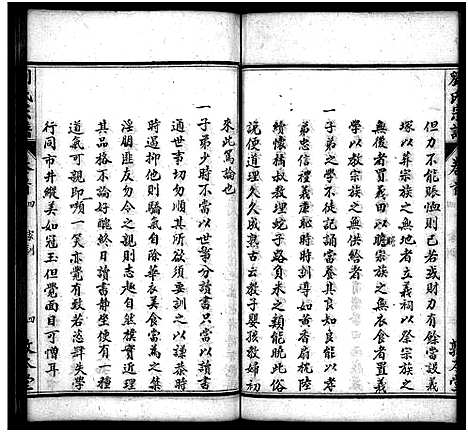 但力不能賬恤則已若或財力有餘當設義
塚以葬宗族之無地者立義祠以祭宗族之
無後者買義田以贍宗族之無衣食者置義
學以教宗族之無供給者
一子弟之學不徒記誦當養其良知良能以孝
弟忠信禮義廉恥時時訓導如黃香扇枕陸
績懷橘叔敖埋蛇子路負米之類能脫此俗
說便道理久久成熟古云教子嬰孩教婦初
來此篤論也
一子弟少時不當以世事分讀書只當以讀書
通世事切勿順其所欲須要訓之以謙恭時
時遏抑他則驕氣自除華衣美食當為之禁
淫朋匪友勿令之親則志趣自然樸實
其品格不期好醜終日讀書靜坐使他有
道氣可親即一嚬一笑亦覺有致若恣肆失學
行同市井縱美如冠玉但覺面目可憎耳
劉氏宗譜
卷首
四
家訓
四
敦本堂